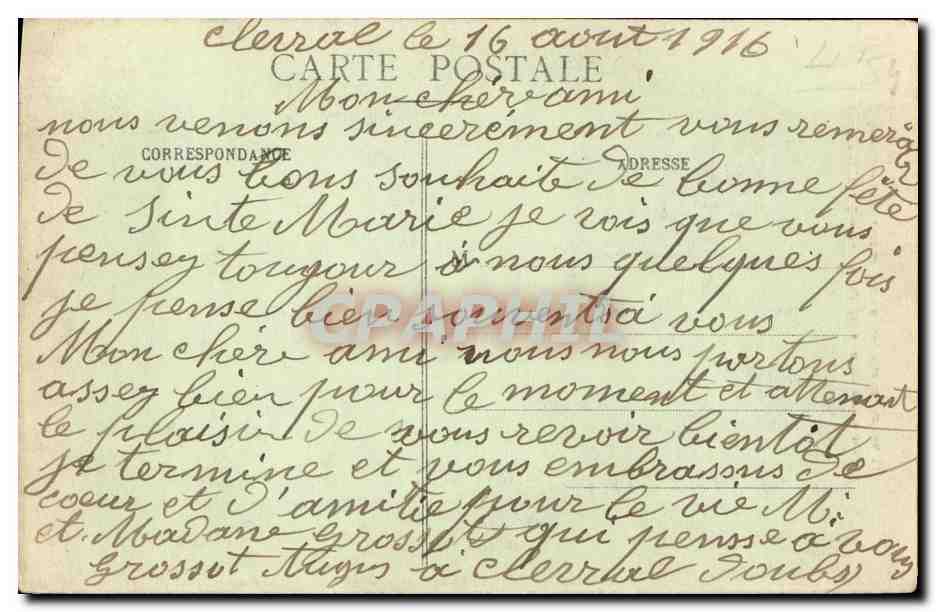 Clerval le 16 aout 1916
CARTE POSTALE
Mon chér ami
nous venons sincerément vous remerci
CORRESPONDANCE
ADRESSE
de vous bons souhaite de bonne fête
de Sinte Marie je vois que vous
pensez tougour à nous quelques fois
je pense bien souvents á vous
CPAPHIL
Mon chér ami nous nous portons
assez bien pour le moment et attenant
le plaisir de vous revoir bientôt
je termine et vous embrassus de
coeur et d'amitié pour le vie M.
et Madane Grossot qui pensse à vous
Grossot à Clerval Doubs